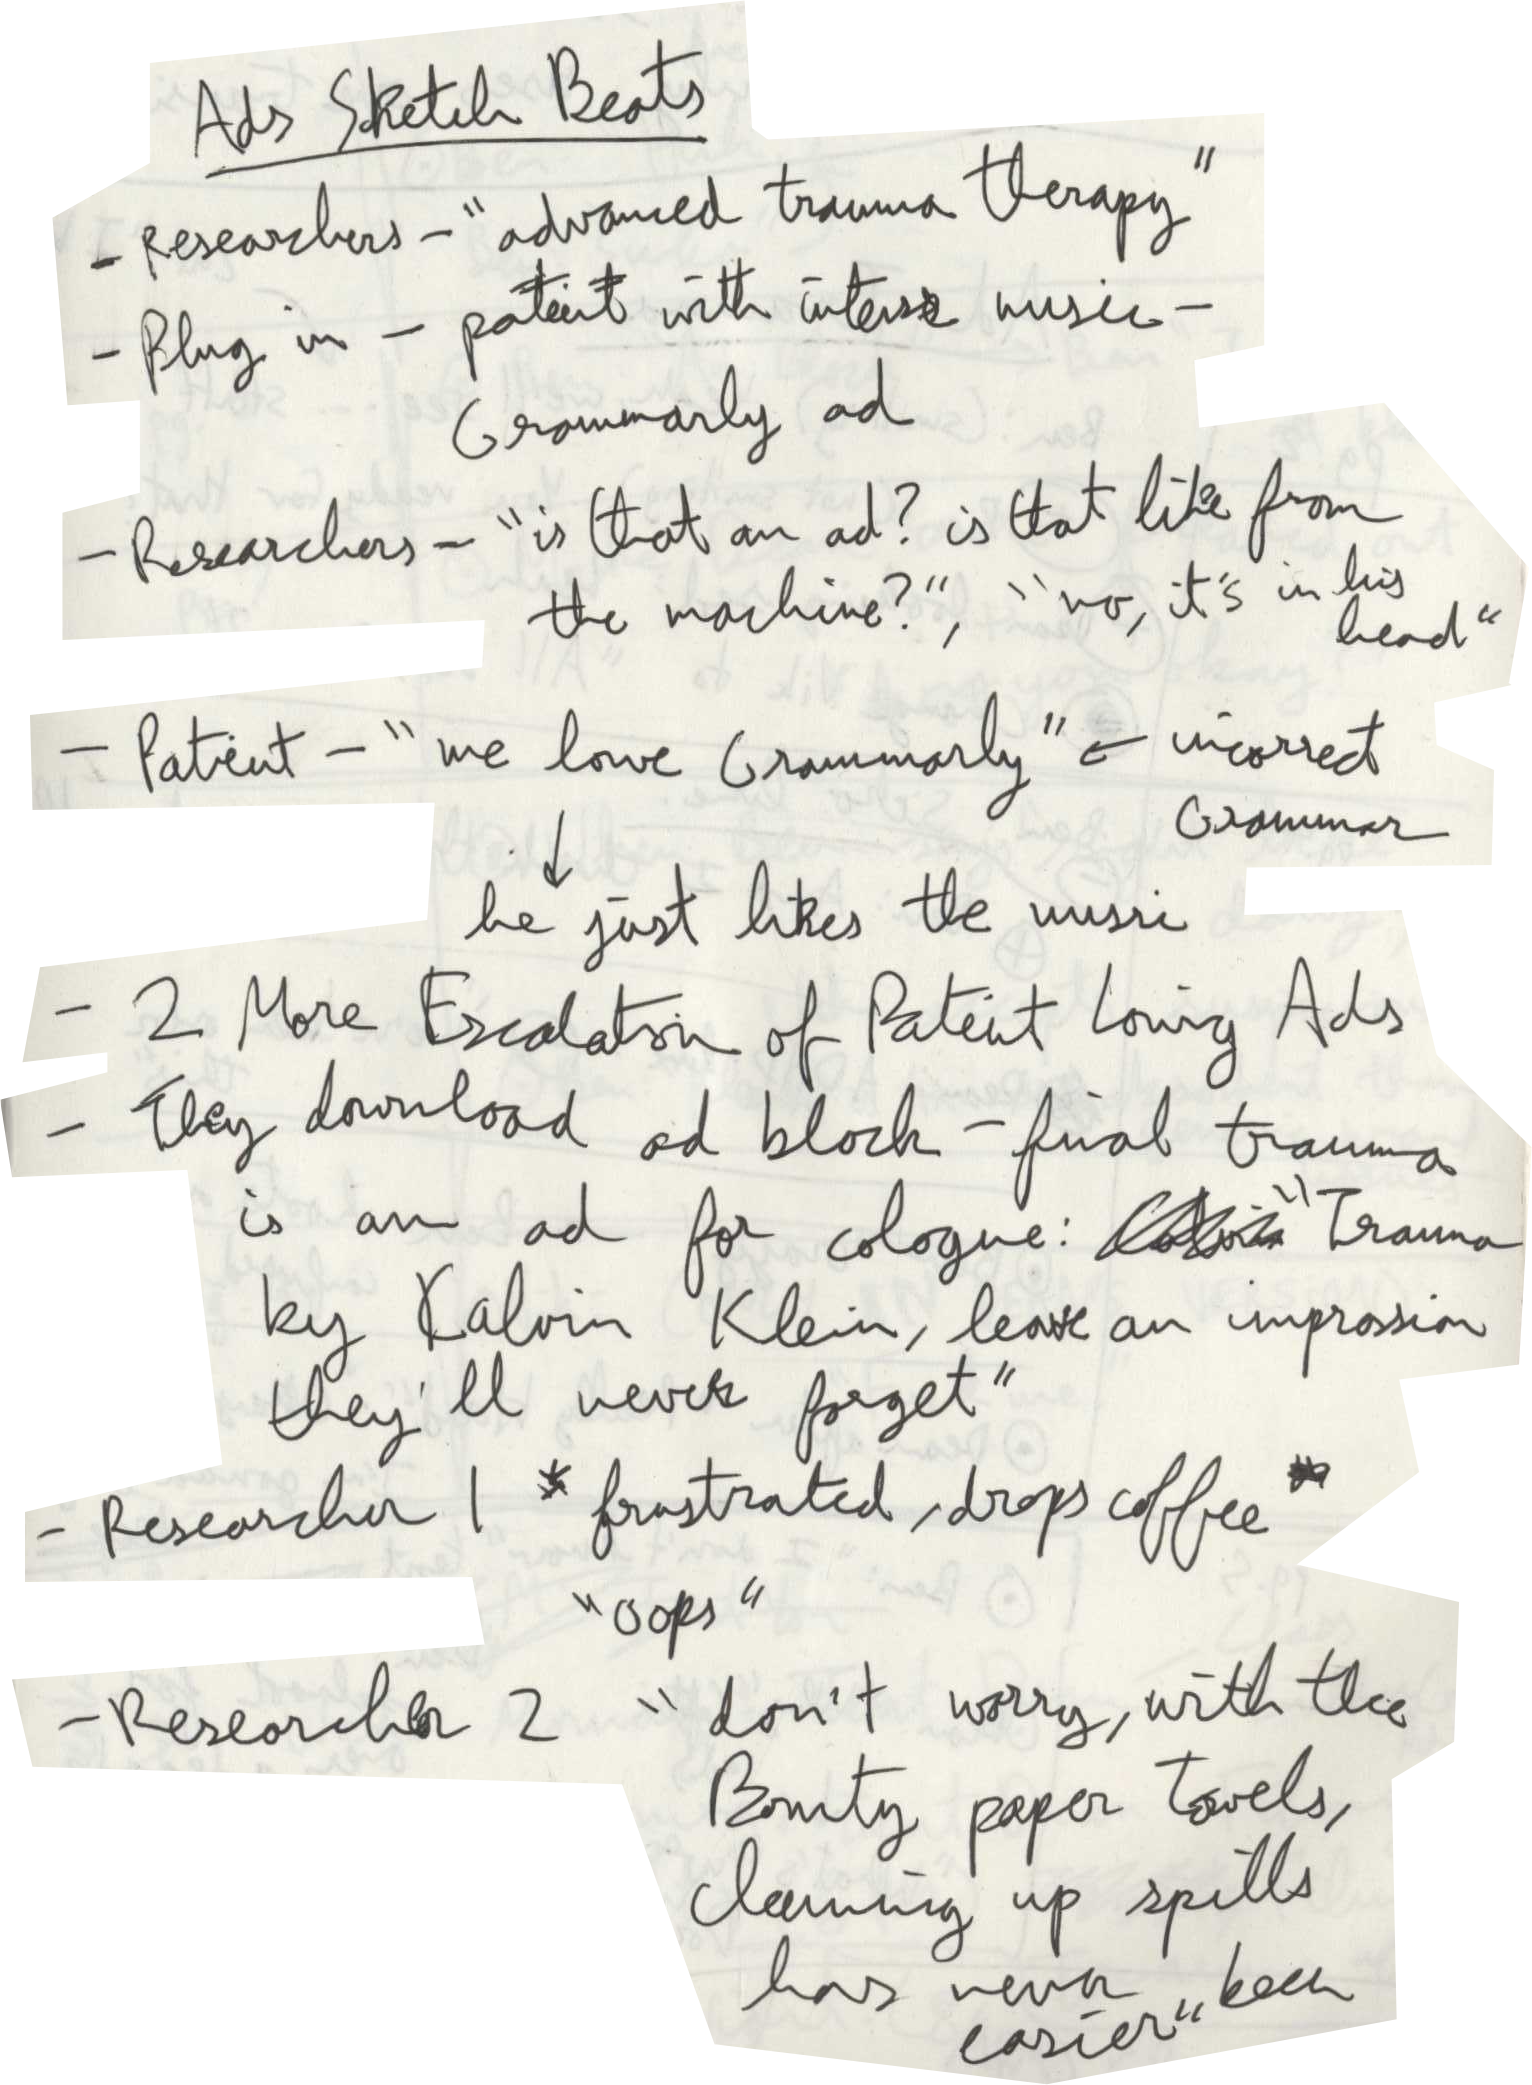 Ads Sketch Beats
- Researchers - "advanced trauma therapy"
- Plug in - patient with intense music -
Grammarly ad
- Researchers - "is that an ad? is that like from
the machine?", "no, it's in his
head"
- Patient - "me love Grammarly" ← incorrect
Grammar
↓
he just likes the music
- 2 More Escalation of Patient Loving Ads
- They download ad block - final trauma
is an ad for cologne: "Trauma
by Kalvin Klein, leave an impression
they'll never forget"
- Researcher 1 *frustrated, drops coffee*
"oops"
- Researcher 2 "don't worry, with the
Bounty paper towels,
cleaning up spills
has never been
easier"